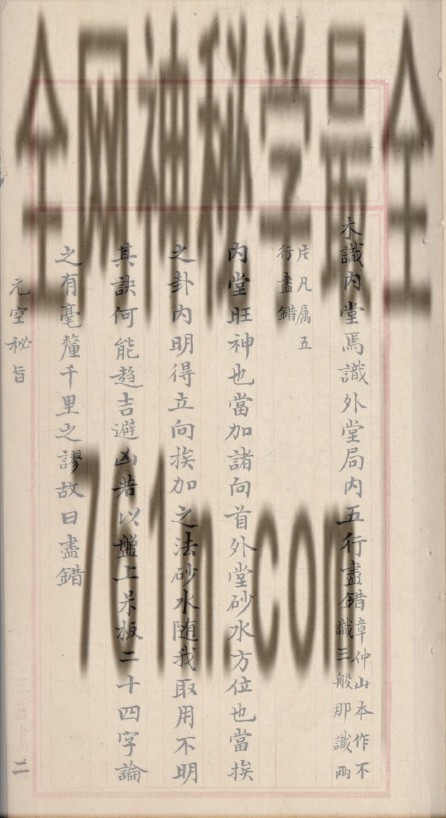 全网神秘学最全
未識內堂焉識外堂局內五行盡錯章仲山本作不識三般那識兩
片凡属五行盡錯
內堂旺神也當加諸向首外堂砂水方位也當挨
之卦內明得立向挨加之法砂水随我取用不明
其訣何能趋吉避凶若以盤上呆板二十四字論
之有毫釐千里之謬故曰盡錯
元空秘旨
二